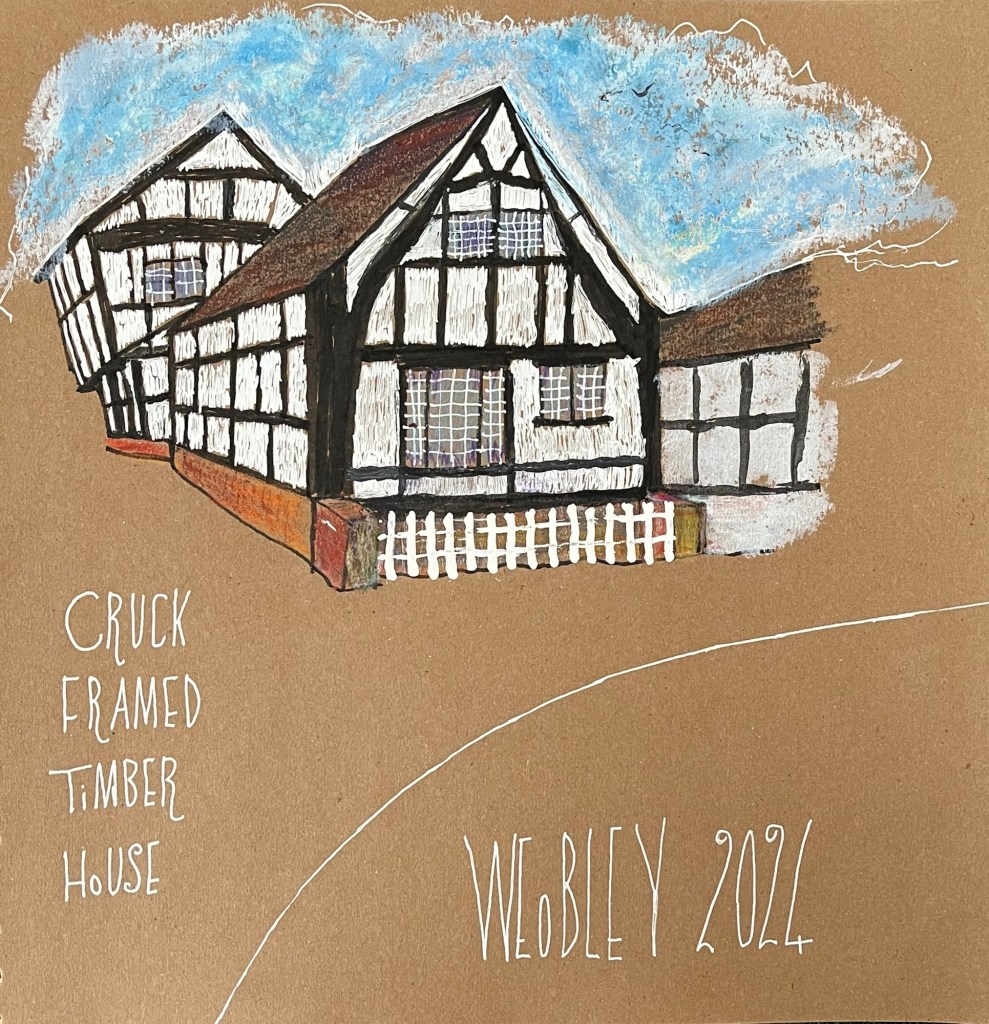 CRUCK
FRAMED
TiMBER
HoUSE
WEoBLEY 2024